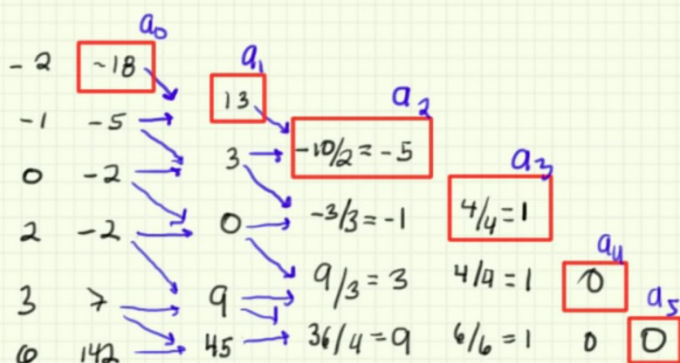 a₀
-2 -18 a₁
-1 -5 13 a₂
0 -2 3 -10/2 = -5 a₃
2 -2 0 -3/3 = -1 4/4 = 1 a₄
3 7 9 9/3 = 3 4/4 = 1 0 a₅
6 142 45 36/4 = 9 6/6 = 1 0 0